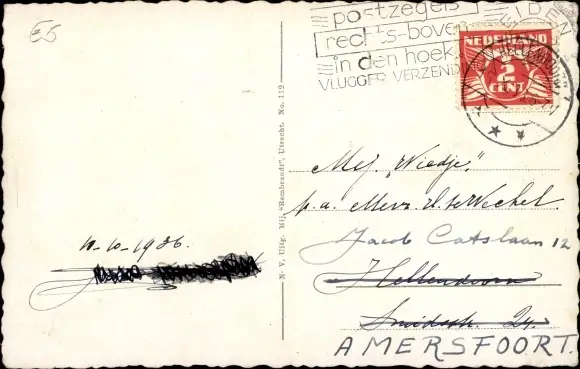 E5
postzegels
rechts-boven
in den hoek
VLUGGER VERZEND
NEDERLAND
2
CENT
N. V. Uitg. Mij. "Rembrandt", Utrecht. No. 112
Mej. "Wiedje".
p.a. Mevr. v. te Wechel.
Jacob Catslaan 12
Hellendoorn
24.
AMERSFOORT.
10-10-1936.